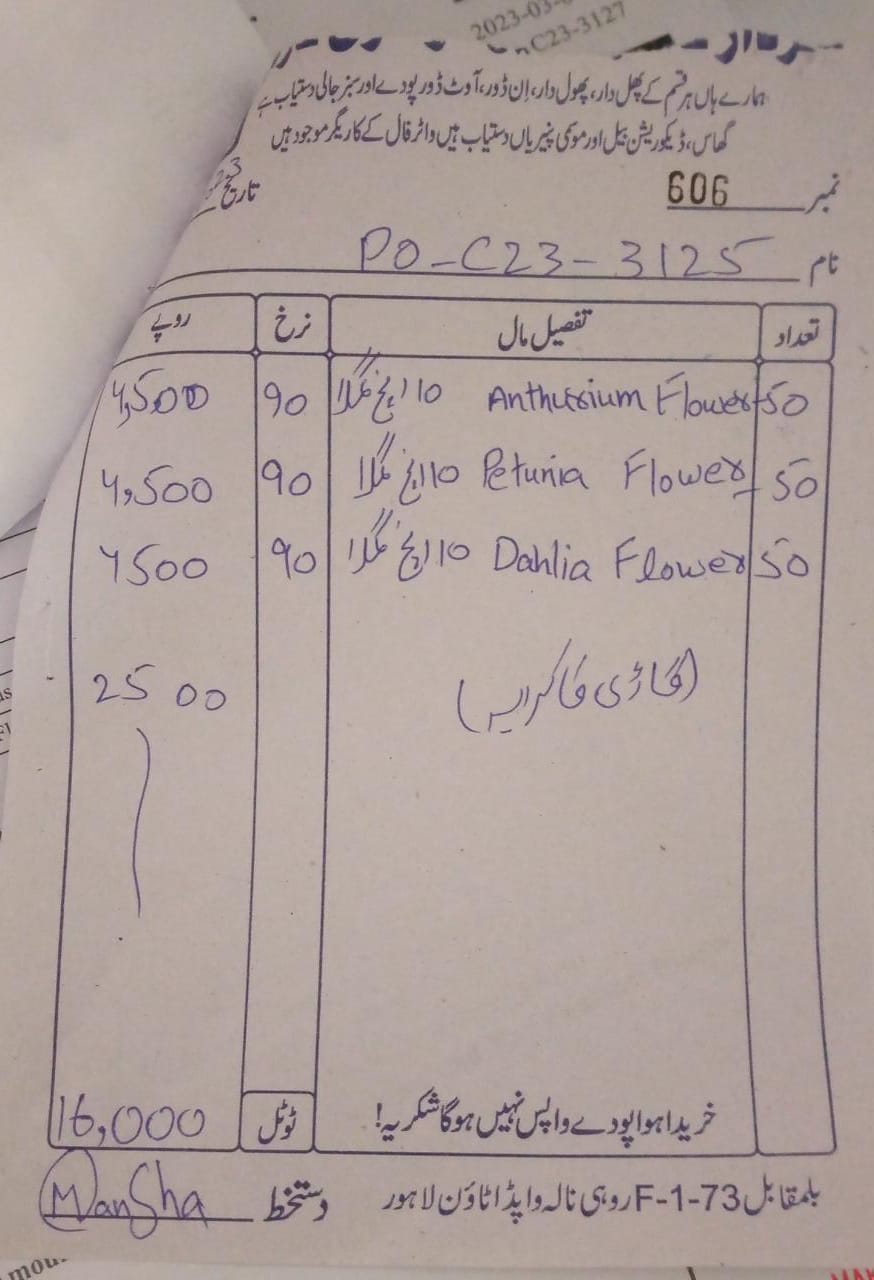 2023-03-
C23-3127
ہمارے ہاں ہر قسم کے پھل دار، پھول دار، اِن ڈور، آوٹ ڈور پودے اور سبز جالی دستیاب ہے
گھاس، ڈیکوریشن بیل اور موسمی پنیریاں دستیاب ہیں واٹر فال کے کاریگر موجود ہیں
نمبر 606 تاریخ
نام PO-C23-3125
تعداد تفصیل مال نرخ روپے
50 Anthurium Flower 10 انچ گملا 90 4,500
50 Petunia Flower 10 انچ گملا 90 4,500
50 Dahlia Flower 10 انچ گملا 90 4500
(گاڑی کا کرایہ) 2500
خریدا ہوا پودے واپس نہیں ہوگا شکریہ! ٹوٹل 16,000
بلمقابل F-1-73 روہی نالہ واپڈا ٹاؤن لاہور دستخط Mansha